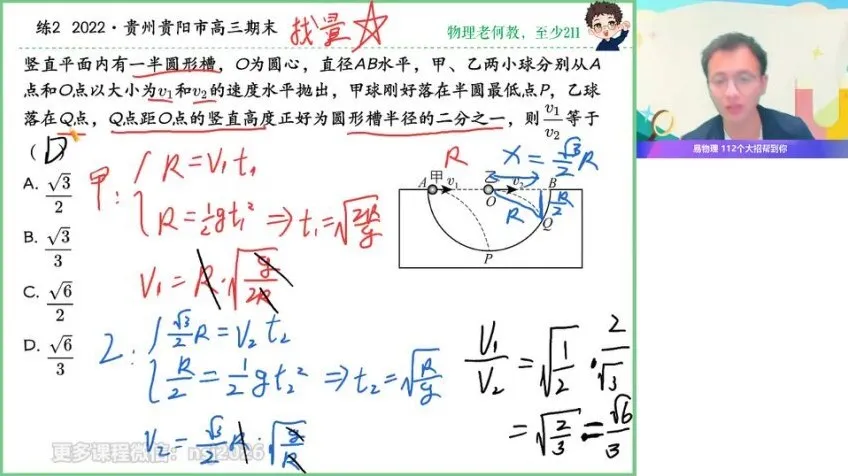 练2 2022·贵州贵阳市高三期末
找量☆
物理老何教，至少211
竖直平面内有一半圆形槽，O为圆心，直径AB水平，甲、乙两小球分别从A
点和O点以大小为v₁和v₂的速度水平抛出，甲球刚好落在半圆最低点P，乙球
落在Q点，Q点距O点的竖直高度正好为圆形槽半径的二分之一，则v₁/v₂等于
( D )
A. √3/2
B. √3/3
C. √6/2
D. √6/3
甲: R=V₁t₁
R=½gt₁² ⇒ t₁=√(2R/g)
V₁=R·√(g/2R)
R
x=√3/2 R
A 甲 v₁ 乙 O v₂ B
R R/2 Q
P
乙: √3/2 R=V₂t₂
R/2=½gt₂² ⇒ t₂=√(R/g)
V₂=√3/2 R·√(g/R)
V₁/V₂=√(1/2)·2/√3
=√(2/3)=√6/3
易物理 112个大招帮到你
更多课程微信：nsl2026